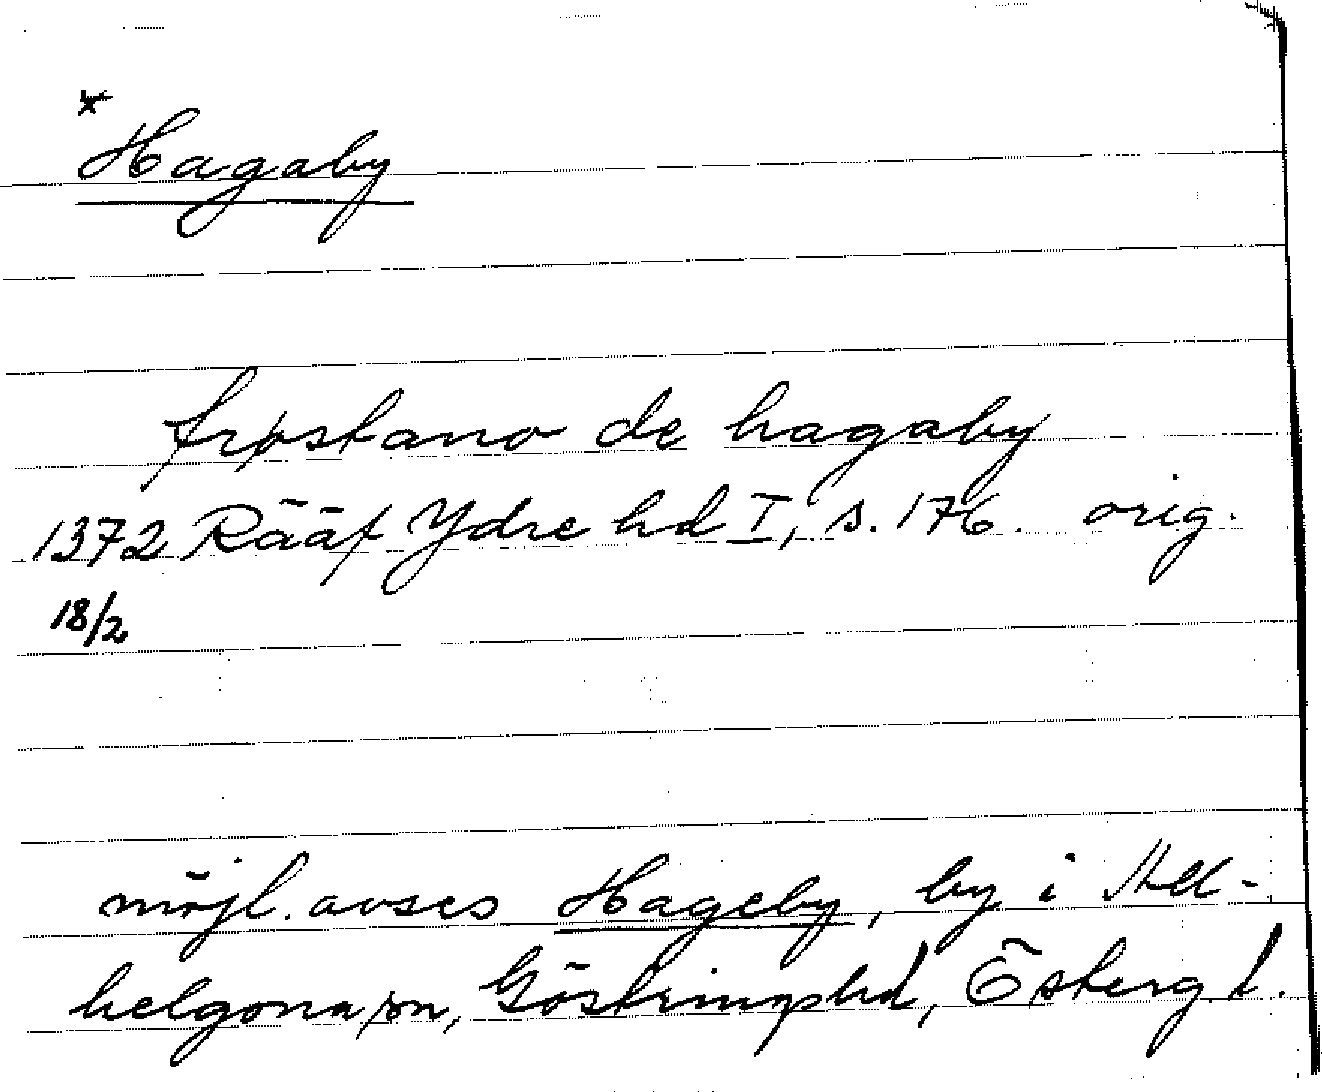 *
Hagaby
frøstano de hagaby
1372 Rääf Ydre hd I, s. 176. orig.
18/2
möjl. avses Hageby, by i All-
helgona sn, Göstringshd, Östergtl.